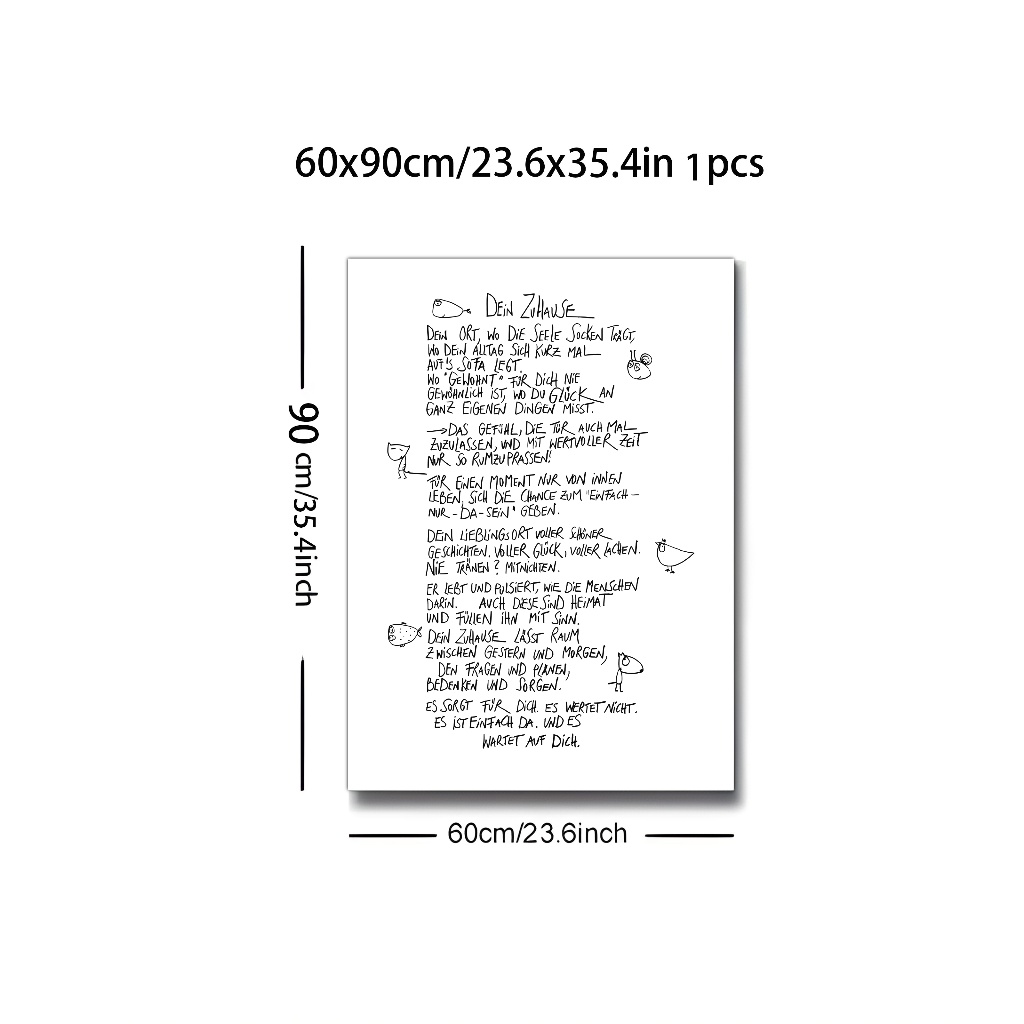 60x90cm/23.6x35.4in 1pcs
90 cm/35.4inch
DEIN ZUHAUSE
DEIN ORT, WO DIE SEELE SOCKEN TRÄGT,
WO DEIN ALLTAG SICH KURZ MAL
AUF'S SOFA LEGT.
WO "GEWOHNT" FÜR DICH NIE
GEWÖHNLICH IST, WO DU GLÜCK AN
GANZ EIGENEN DINGEN MISST.
→DAS GEFÜHL, DIE TÜR AUCH MAL
ZUZULASSEN, UND MIT WERTVOLLER ZEIT
NUR SO RUMZUPRASSEN!
FÜR EINEN MOMENT NUR VON INNEN
LEBEN, SICH DIE CHANCE ZUM "EINFACH-
NUR-DA-SEIN" GEBEN.
DEIN LIEBLINGSORT VOLLER SCHÖNER
GESCHICHTEN, VOLLER GLÜCK, VOLLER LACHEN.
NIE TRÄNEN? MITNICHTEN.
ER LEBT UND PULSIERT, WIE DIE MENSCHEN
DARIN. AUCH DIESE SIND HEIMAT
UND FÜLLEN IHN MIT SINN.
DEIN ZUHAUSE LÄSST RAUM
ZWISCHEN GESTERN UND MORGEN,
DEN FRAGEN UND PLÄNEN,
BEDENKEN UND SORGEN.
ES SORGT FÜR DICH. ES WERTET NICHT.
ES IST EINFACH DA. UND ES
WARTET AUF DICH.
60cm/23.6inch